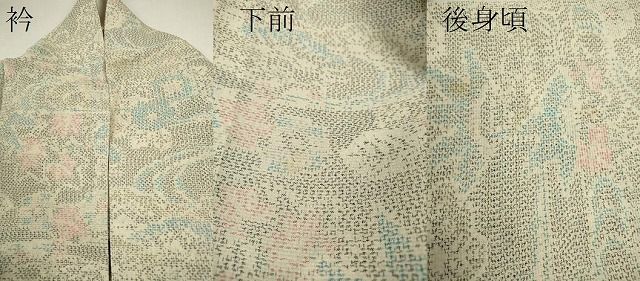 衿
下前
後身頃